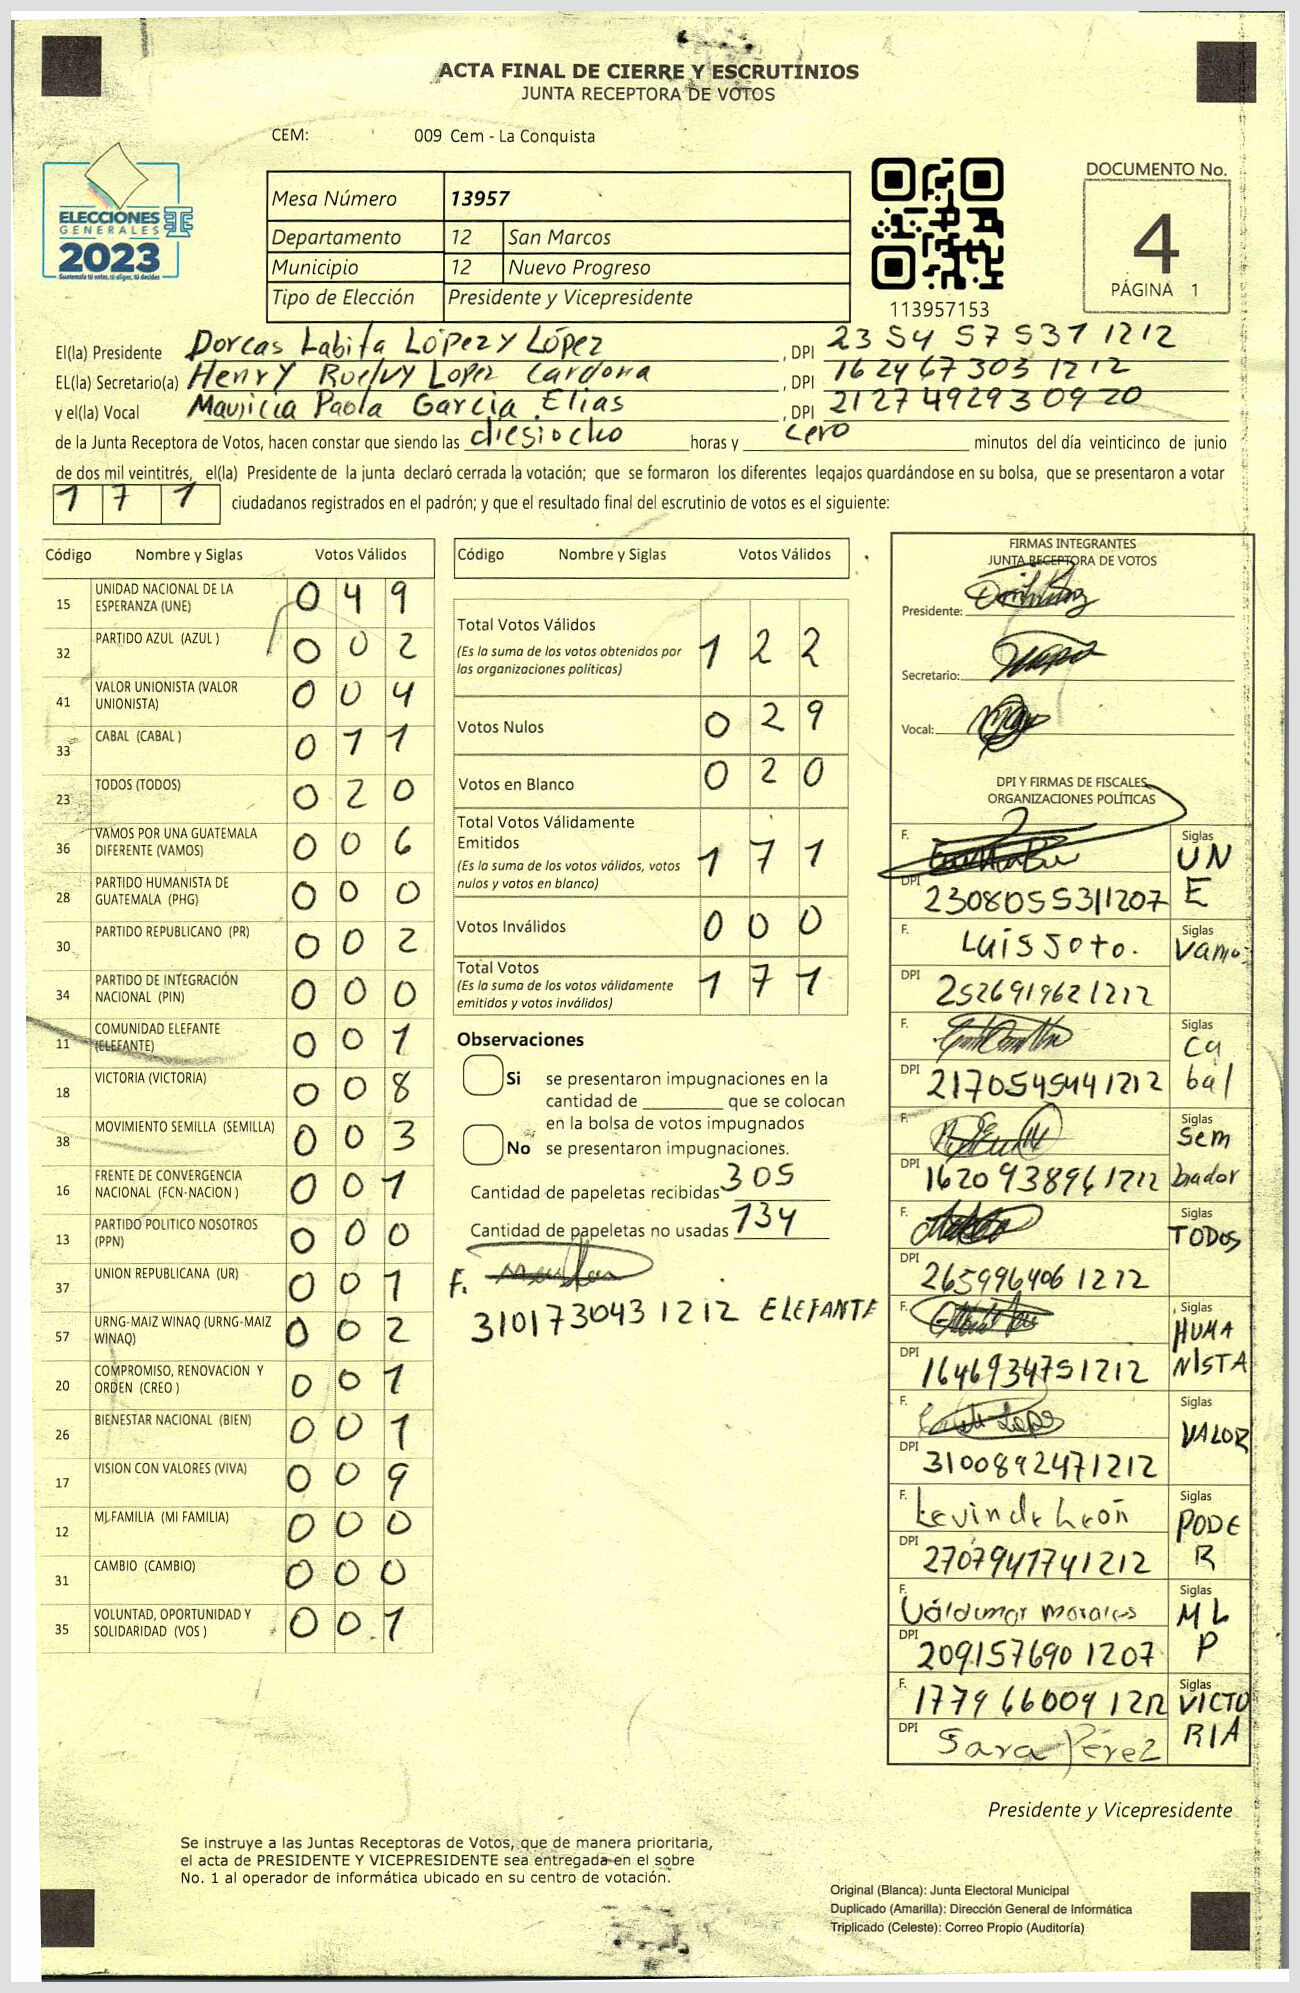 ACTA FINAL DE CIERRE Y ESCRUTINIOS
JUNTA RECEPTORA DE VOTOS
CEM: 009 Cem - La Conquista
ELECCIONES
GENERALES
2023
Guatemala tú votas, tú eliges, tú decides
Mesa Número 13957
Departamento 12 San Marcos
Municipio 12 Nuevo Progreso
Tipo de Elección Presidente y Vicepresidente
113957153
DOCUMENTO No.
4
PÁGINA 1
El(la) Presidente Dorcas Labita López y López , DPI 2354 57537 1212
EL(la) Secretario(a) Henry Lopez Cardona , DPI 1624 67303 1212
y el(la) Vocal Mauricia Paola Garcia Elias , DPI 2127 49293 0920
de la Junta Receptora de Votos, hacen constar que siendo las diesiocho horas y cero minutos del día veinticinco de junio
de dos mil veintitrés, el(la) Presidente de la junta declaró cerrada la votación; que se formaron los diferentes legajos guardándose en su bolsa, que se presentaron a votar
171 ciudadanos registrados en el padrón; y que el resultado final del escrutinio de votos es el siguiente:
Código Nombre y Siglas Votos Válidos
15 UNIDAD NACIONAL DE LA ESPERANZA (UNE) 049
32 PARTIDO AZUL (AZUL ) 002
41 VALOR UNIONISTA (VALOR UNIONISTA) 004
33 CABAL (CABAL ) 011
23 TODOS (TODOS) 020
36 VAMOS POR UNA GUATEMALA DIFERENTE (VAMOS) 006
28 PARTIDO HUMANISTA DE GUATEMALA (PHG) 000
30 PARTIDO REPUBLICANO (PR) 002
34 PARTIDO DE INTEGRACIÓN NACIONAL (PIN) 000
11 COMUNIDAD ELEFANTE (ELEFANTE) 001
18 VICTORIA (VICTORIA) 008
38 MOVIMIENTO SEMILLA (SEMILLA) 003
16 FRENTE DE CONVERGENCIA NACIONAL (FCN-NACION ) 001
13 PARTIDO POLITICO NOSOTROS (PPN) 000
37 UNION REPUBLICANA (UR) 001
57 URNG-MAIZ WINAQ (URNG-MAIZ WINAQ) 002
20 COMPROMISO, RENOVACION Y ORDEN (CREO ) 001
26 BIENESTAR NACIONAL (BIEN) 001
17 VISION CON VALORES (VIVA) 009
12 MI FAMILIA (MI FAMILIA) 000
31 CAMBIO (CAMBIO) 000
35 VOLUNTAD, OPORTUNIDAD Y SOLIDARIDAD (VOS ) 001
Código Nombre y Siglas Votos Válidos
Total Votos Válidos 122
(Es la suma de los votos obtenidos por
las organizaciones políticas)
Votos Nulos 029
Votos en Blanco 020
Total Votos Válidamente
Emitidos 171
(Es la suma de los votos válidos, votos
nulos y votos en blanco)
Votos Inválidos 000
Total Votos 171
(Es la suma de los votos válidamente
emitidos y votos inválidos)
Observaciones
Si se presentaron impugnaciones en la
cantidad de ________ que se colocan
en la bolsa de votos impugnados
No se presentaron impugnaciones.
Cantidad de papeletas recibidas 305
Cantidad de papeletas no usadas 134
F.
310173043 1212 ELEFANTE
FIRMAS INTEGRANTES
JUNTA RECEPTORA DE VOTOS
Presidente:
Secretario:
Vocal:
DPI Y FIRMAS DE FISCALES
ORGANIZACIONES POLÍTICAS
F. Siglas UNE
DPI 2308055311207
F. Luis Soto. Siglas Vamos
DPI 2526919621212
F. Siglas Cabal
DPI 2170545441212
F. Siglas Sembrador
DPI 1620938961212
F. Siglas TODOS
DPI 265996406 1212
F. Siglas HUMANISTA
DPI 1646934751212
F. Siglas VALOR
DPI 3100892471212
F. Kevin de León Siglas PODER
DPI 2707941741212
F. Váldemar morales Siglas MLP
DPI 209157690 1207
F. 1779 66009 1212 Siglas VICTORIA
DPI Sara Pérez
Presidente y Vicepresidente
Se instruye a las Juntas Receptoras de Votos, que de manera prioritaria,
el acta de PRESIDENTE Y VICEPRESIDENTE sea entregada en el sobre
No. 1 al operador de informática ubicado en su centro de votación.
Original (Blanca): Junta Electoral Municipal
Duplicado (Amarilla): Dirección General de Informática
Triplicado (Celeste): Correo Propio (Auditoría)